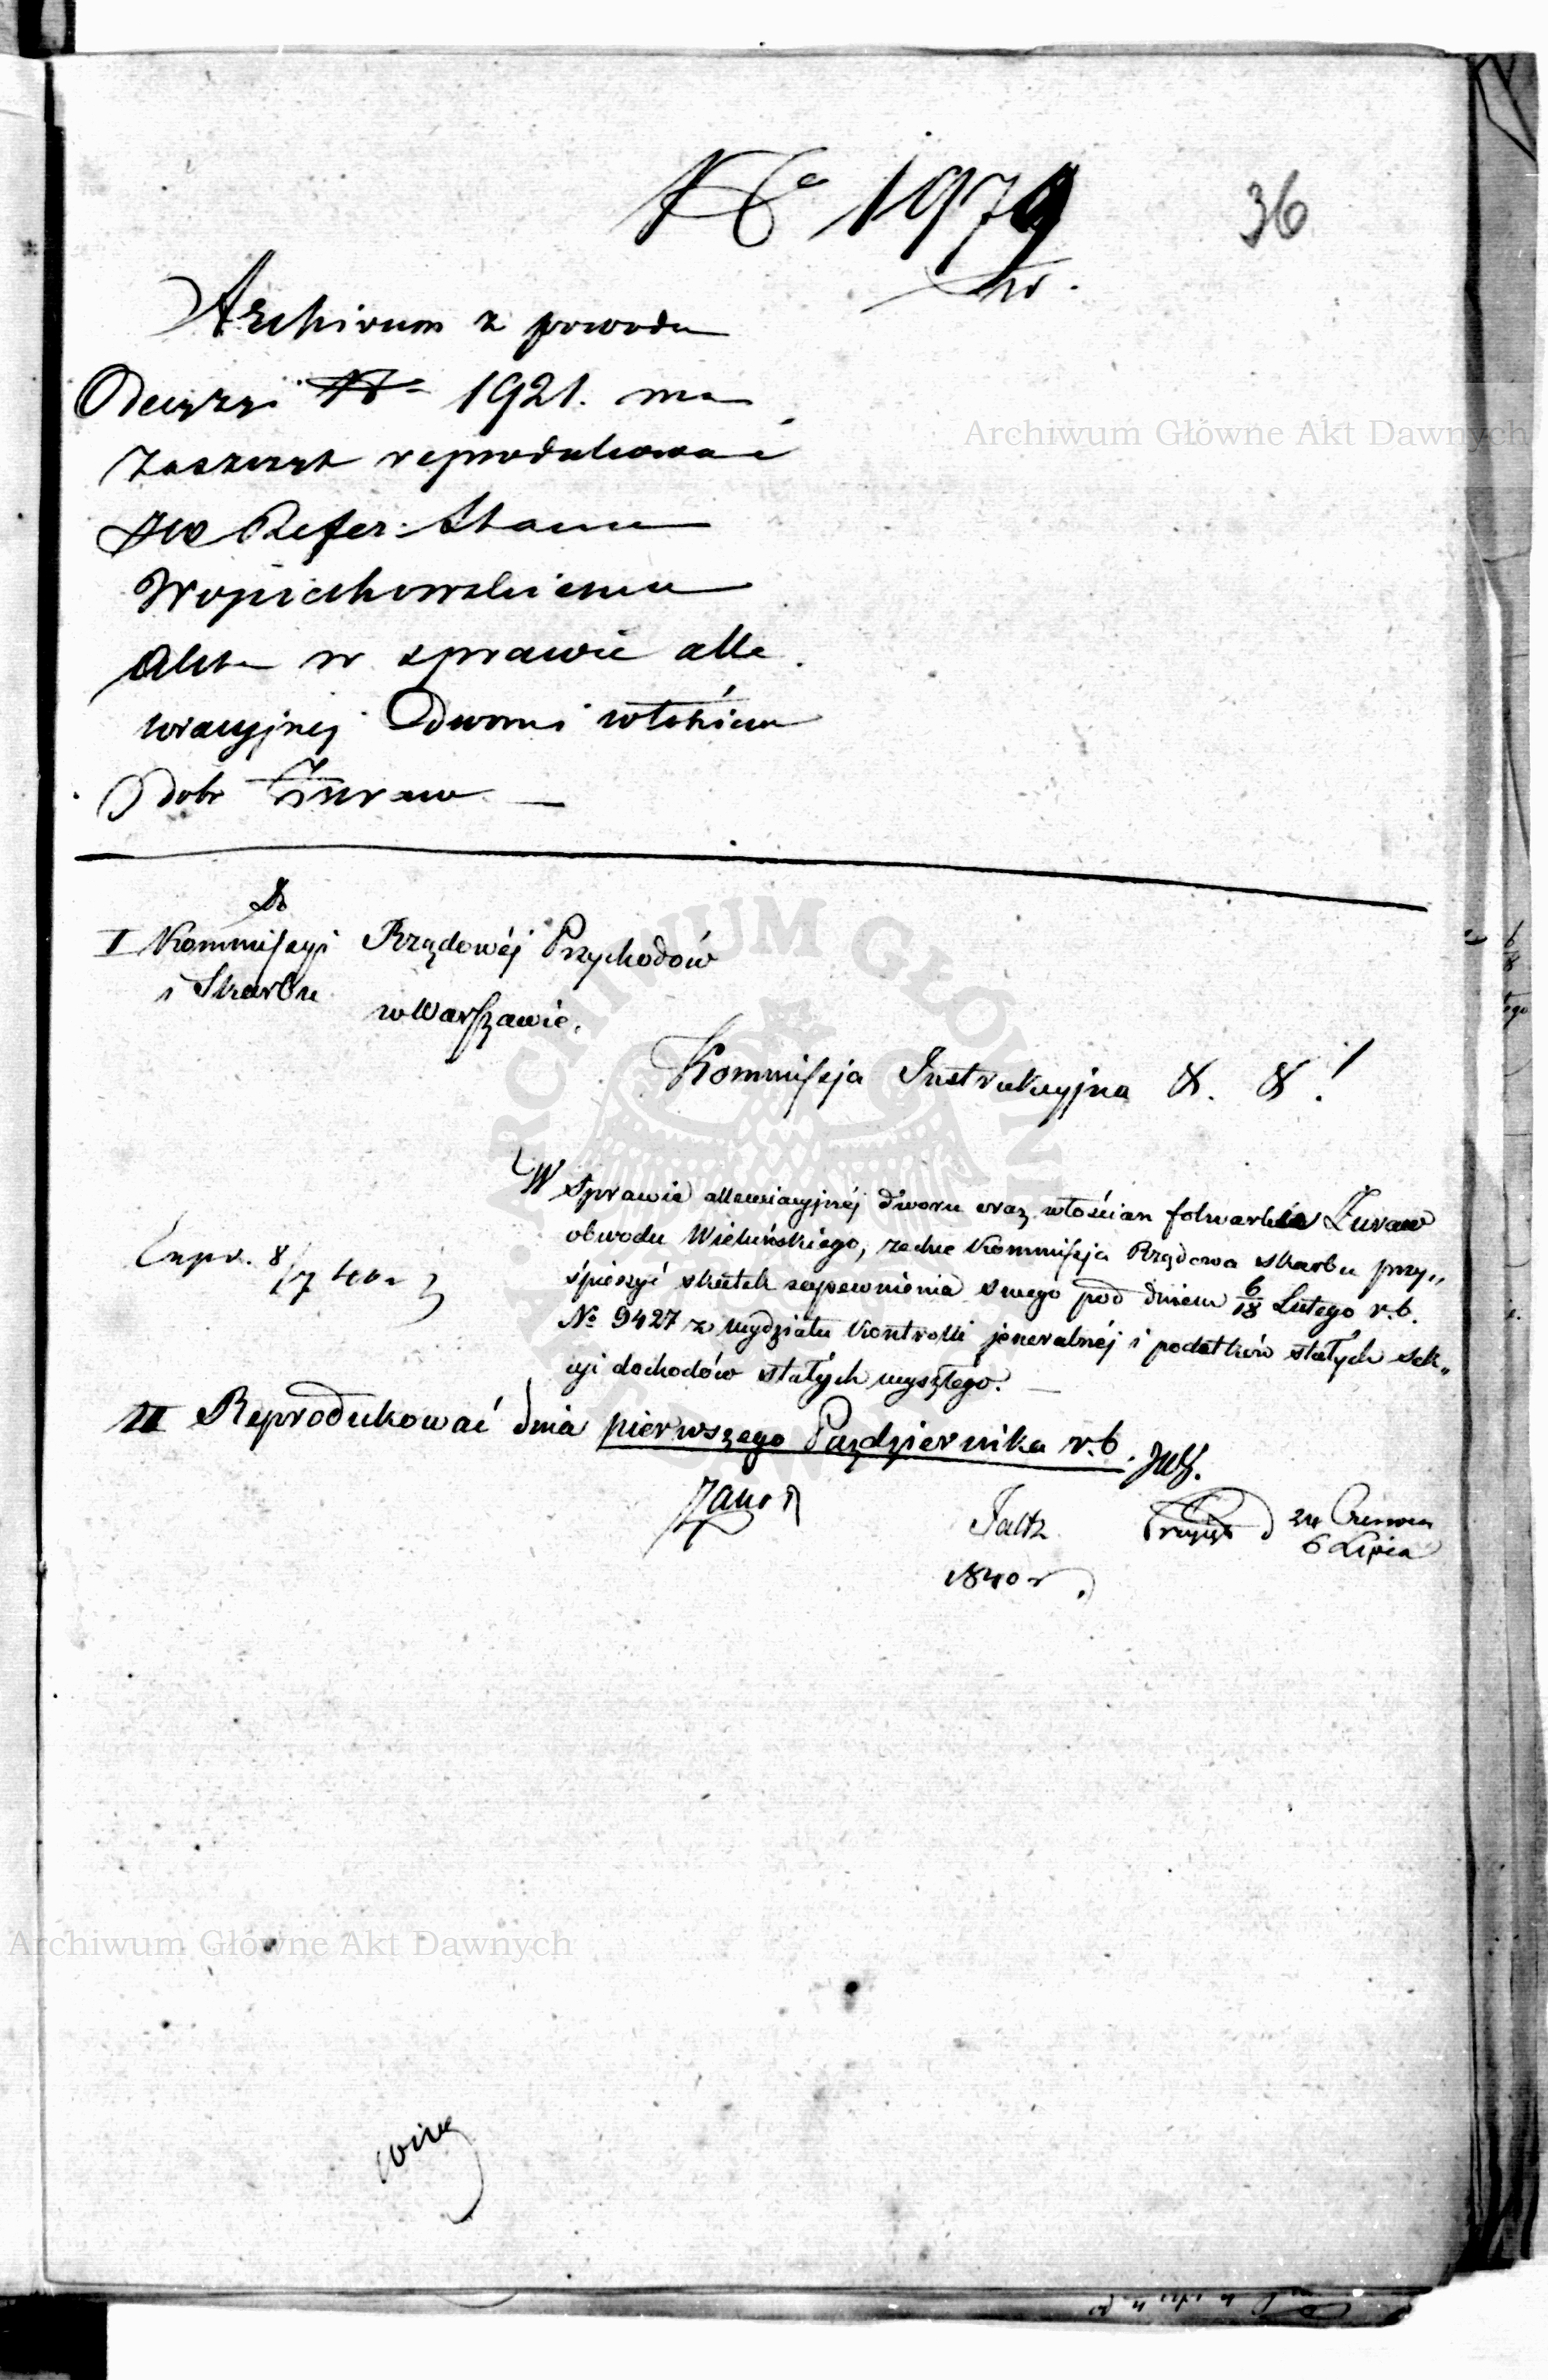 No 1979
36
Archivum z powodu
Decyzyi No 1921. ma
zaszczyt reprodukować
JW Refer. Stanu
Woyciechowskiemu
Akta w sprawie alle
wiacyjnej Dworu i włościan
Dobr Żuraw —
Do
I Kommissyi Rządowéj Przychodów
i Skarbu
w Warszawie.
Kommissja Instrukcyjna &. &!
W sprawie allewiacyjnéj dworu oraz włościan folwarku Żuraw
obwodu Wieluńskiego, zechce Kommissja Rządowa skarbu przy„
śpieszyć skutek zapewnienia swego pod dniem 6/18 Lutego r.b.
No 9427 z wydziału Kontrolli jeneralnéj i podatków stałych sek„
cyi dochodów stałych wyszłego. —
Expr. 8/7 40
II Reprodukować dnia pierwszego Października r.b.
Faltz
24 Czerwca
6 Lipca
1840 r.
Archiwum Główne Akt Dawnych
ARCHIWUM GŁÓWNE AKT DAWNYCH
Archiwum Główne Akt Dawnych